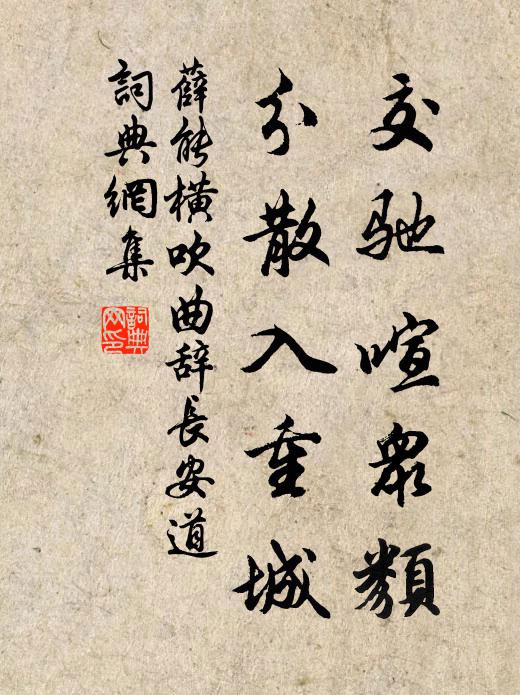 交馳喧眾類
分散入重城
薛能橫吹曲辞長安道
詞典網集
詞典网印